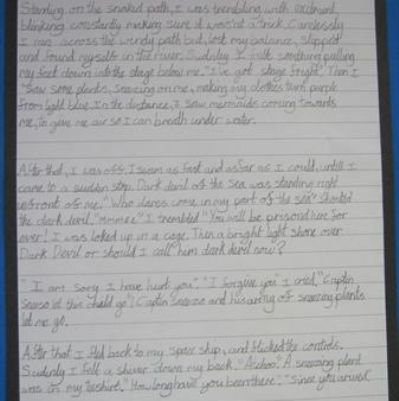 Standing on the snaked path, I was trembling with excitment,
blinking constantly making sure it wasn't a trick. Carelessly
I ran across the windy path but, lost my balance, slipped
and found myself in the river. Sudnley I felt something pulling
my feet down into the stage below me. "I've got stage fright." Then I
saw some plants, sneezing on me, making my clothes turn purple
from light blue. In the distance, I saw mermaids coming towards
me, to give me air so I can breath under water.
After that, I was off. I swam as fast and as far as I could, untill I
came to a sudden stop. Dark devil of the sea was standing right
infront of me. "Who dares come in my part of the sea" shouted
the dark devil. "mmmee" I trembled "You will be prisond here for
ever! I was locked up in a cage. Then a bright light shone over
Dark Devil or should I call him dark devil now?
"I am sorry I have hurt you". "I forgive you" I cried, "Captin
let this child go"! Captin and his army of sneezing plants
let me go.
After that I fled back to my space ship, and the controls.
Sudenly I felt a shiver down my back. "Atchoo". A sneezing plant
was in my teshirt." How long have you been there". "Since you